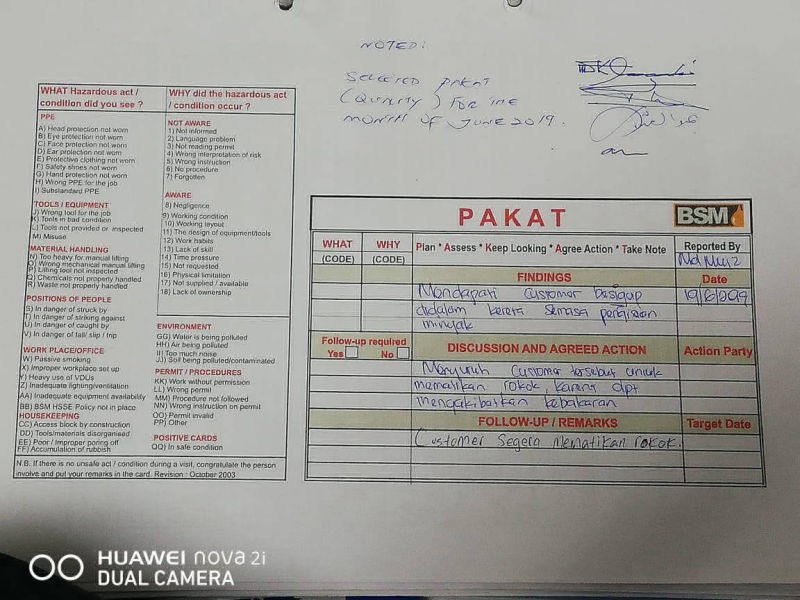 NOTED:
SELECTED PAKAT
(QUALITY) FOR THE
MONTH OF JUNE 2019.
WHAT Hazardous act /
condition did you see ?
PPE
A) Head protection not worn
B) Eye protection not worn
C) Face protection not worn
D) Ear protection not worn
E) Protective clothing not worn
F) Safety shoes not worn
G) Hand protection not worn
H) Wrong PPE for the job
I) Substandard PPE
TOOLS / EQUIPMENT
J) Wrong tool for the job
K) Tools in bad condition
L) Tools not provided or inspected
M) Misuse
MATERIAL HANDLING
N) Too heavy for manual lifting
O) Wrong mechanical manual lifting
P) Lifting tool not inspected
Q) Chemicals not properly handled
R) Waste not properly handled
POSITIONS OF PEOPLE
S) In danger of struck by
T) In danger of striking against
U) In danger of caught by
V) In danger of fall/ slip / trip
WORK PLACE/OFFICE
W) Passive smoking
X) Improper workplace set up
Y) Heavy use of VDUs
Z) Inadequate lighting/ventilation
AA) Inadequate equipment availability
BB) BSM HSSE Policy not in place
HOUSEKEEPING
CC) Access block by construction
DD) Tools/materials disorganised
EE) Poor / Improper poring off
FF) Accumulation of rubbish
WHY did the hazardous act
/ condition occur ?
NOT AWARE
1) Not informed
2) Language problem
3) Not reading permit
4) Wrong interpretation of risk
5) Wrong instruction
6) No procedure
7) Forgotten
AWARE
8) Negligence
9) Working condition
10) Working layout
11) The design of equipment/tools
12) Work habits
13) Lack of skill
14) Time pressure
15) Not requested
16) Physical limitation
17) Not supplied / available
18) Lack of ownership
ENVIRONMENT
GG) Water is being polluted
HH) Air being polluted
II) Too much noise
JJ) Soil being polluted/contaminated
PERMIT / PROCEDURES
KK) Work without permission
LL) Wrong permit
MM) Procedure not followed
NN) Wrong instruction on permit
OO) Permit invalid
PP) Other
POSITIVE CARDS
QQ) In safe condition
N.B. If there is no unsafe act / condition during a visit, congratulate the person
involve and put your remarks in the card. Revision : October 2003
PAKAT
BSM
WHAT
(CODE)
WHY
(CODE)
Plan * Assess * Keep Looking * Agree Action * Take Note
Reported By
FINDINGS
Date
Mendapati customer besigup
19/6/2019
didalam kereta semasa pengisian
minyak
Follow-up required
Yes
No
DISCUSSION AND AGREED ACTION
Action Party
Menyuruh customer tersebut untuk
mematikan rokok karena dpt
mengakibatkan kebakaran
FOLLOW-UP / REMARKS
Target Date
Customer segera mematikan rokok.
HUAWEI nova 2i
DUAL CAMERA